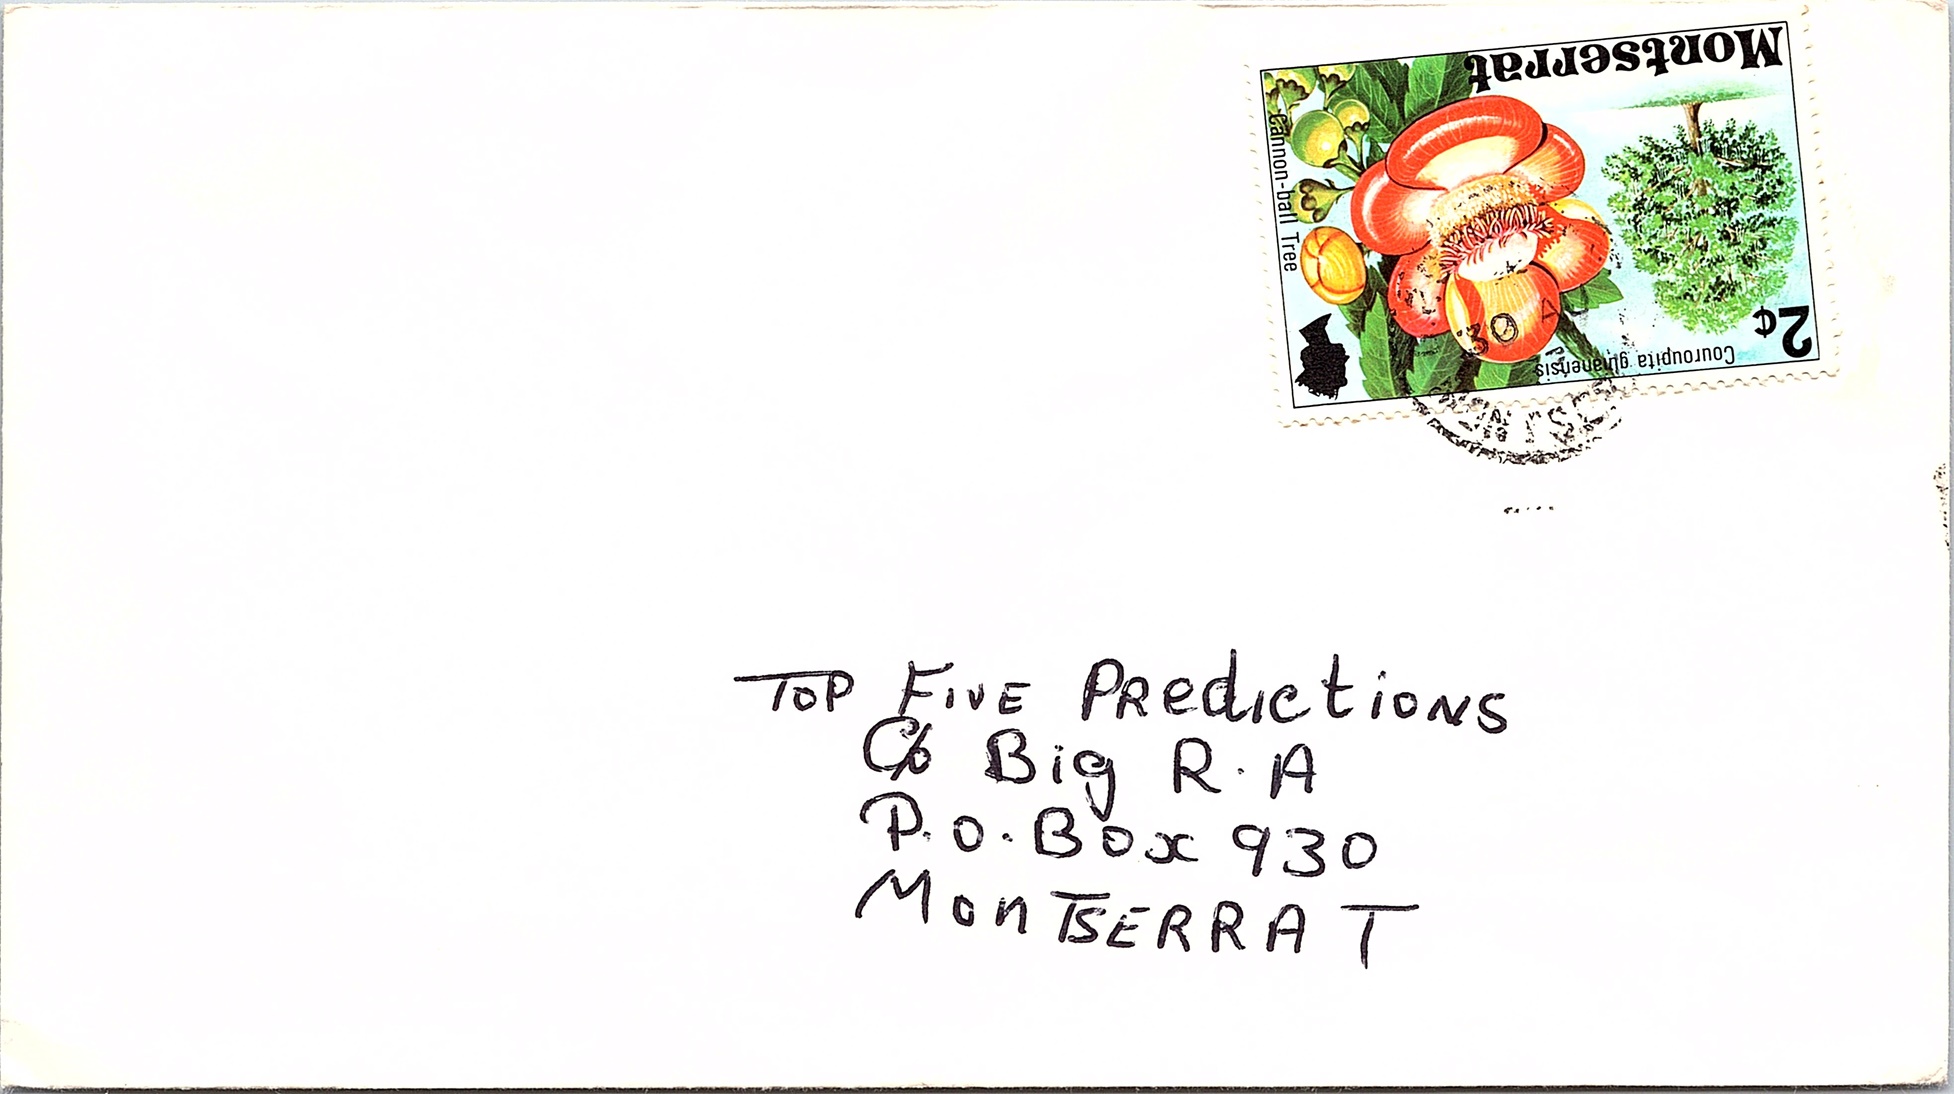 Montserrat
Cannon-ball Tree
2¢
Couroupita guianensis
30 A
TOP FIVE PRedictioNS
C/o Big R. A
P.O. Box 930
MonTSERRAT